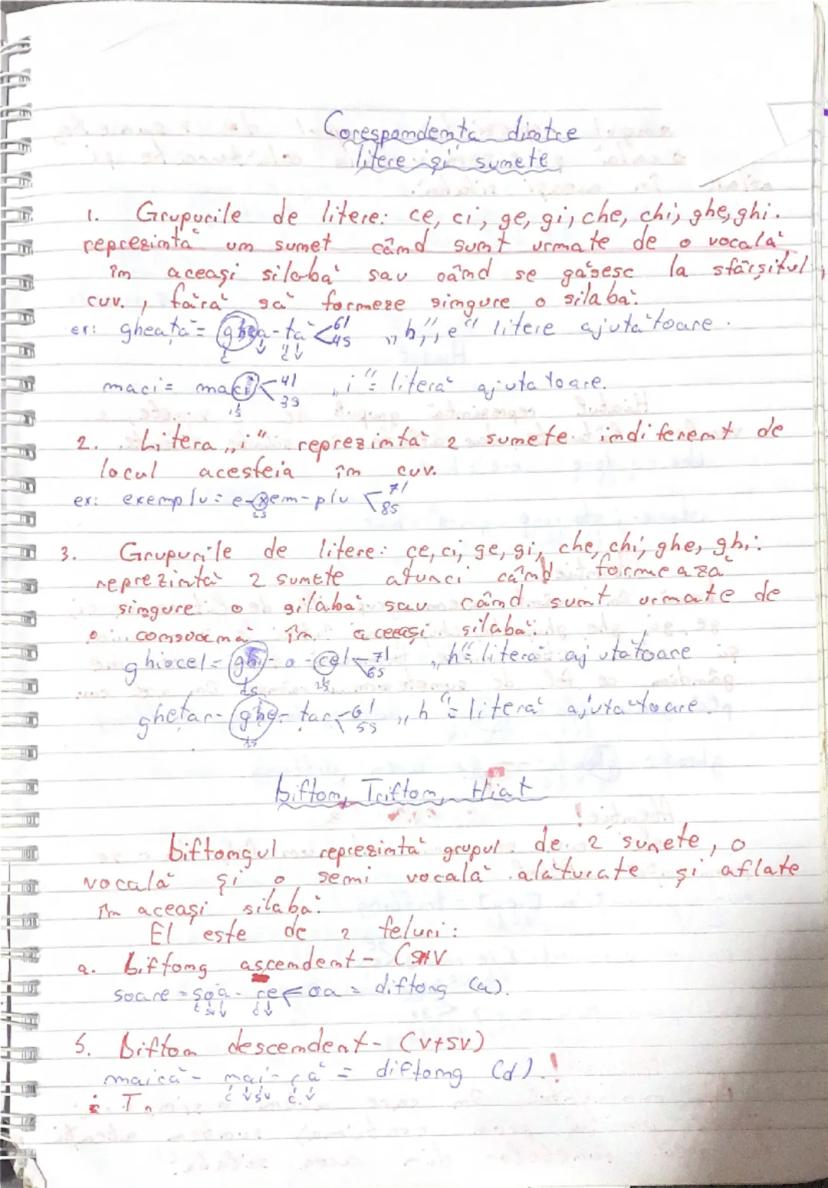 Corespondența dintre
litere și sunete
1. Grupurile de litere: ce, ci, ge, gi, che, chi, ghe, ghi.
reprezintă un sunet când sunt urmate de o vocală,
în aceași silabă sau când se găsesc la sfârșitul
cuv., fără să formeze singure o silabă.
ex: gheață = ghea-ță < 6l 4s „h", „e" litere ajutătoare.
c v c v
maci = maci < 4l 3s „i" = literă ajutatoare.
1s
2. Litera „i" reprezintă 2 sunete indiferent de
locul acesteia în cuv.
ex: exemplu = e-xem-plu < 7l 8s
2s
3. Grupurile de litere: ce, ci, ge, gi, che, chi, ghe, ghi.
reprezintă 2 sunete atunci când formează
singure o silabă sau când sunt urmate de
o consoană în aceeași silabă.
ghiocel = ghi-o-cel < 7l 6s „h" = literă ajutătoare
2s 2s
ghețar - ghe-țar < 6l 5s „h" = literă ajutătoare.
2s
Diftom, Triftom, Hiat
Diftongul reprezintă grupul de 2 sunete, o
vocală și o semi vocală alăturate și aflate
în aceași silabă.
El este de 2 feluri:
a. Diftong ascendent - (s+v
soare = soa-re < oa = diftong (a).
c sv v c v
b. Difton descendent - (v+sv)
maică - mai-că = diftong (d). !
c v sv c v